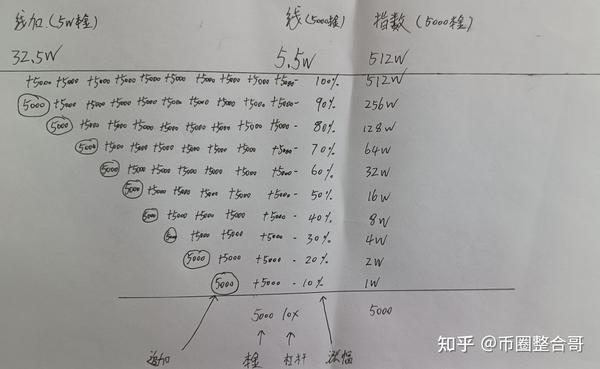 线加.(5W本金) 线(5000本金) 指数(5000本金)
32.5W 5.5W 512W
+5000 +5000 +5000 +5000 +5000 +5000 +5000 +5000 +5000 +5000 - 100% 512W
5000 +5000 +5000 +5000 +5000 +5000 +5000 +5000 +5000 +5000 - 90% 256W
5000 +5000 +5000 +5000 +5000 +5000 +5000 +5000 +5000 - 80% 128W
5000 +5000 +5000 +5000 +5000 +5000 +5000 - 70% 64W
5000 +5000 +5000 +5000 +5000 +5000 - 60% 32W
5000 +5000 +5000 +5000 +5000 - 50% 16W
5000 +5000 +5000 +5000 +5000 - 40% 8W
5000 +5000 +5000 +5000 - 30% 4W
5000 +5000 +5000 - 20% 2W
5000 +5000 - 10% 1W
5000 10X 5000
追加 本金 杠杆 涨幅
知乎 @币圈整合哥